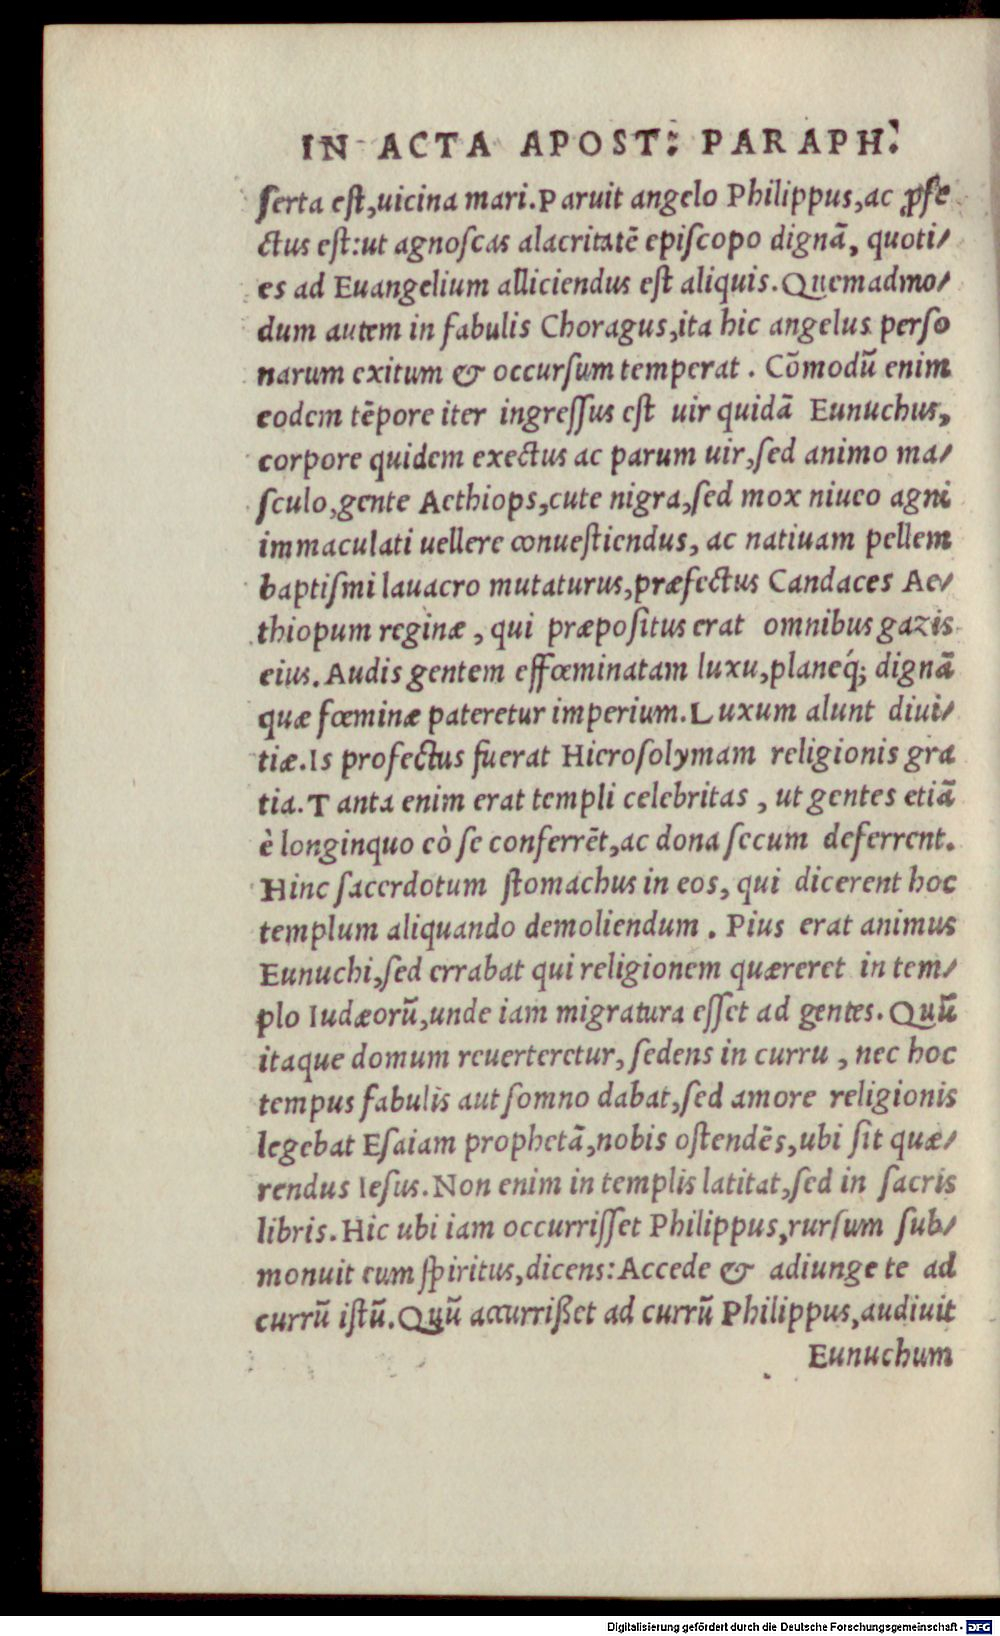 IN ACTA APOST: PARAPH:
ſerta eſt,uicina mari.Paruit angelo Philippus,ac ꝓfe
ctus eſt:ut agnoſcas alacritatē epiſcopo dignā, quoti/
es ad Euangelium alliciendus eſt aliquis.Quemadmo/
dum autem in fabulis Choragus,ita hic angelus perſo
narum exitum & occurſum temperat . Cōmodū enim
eodem tēpore iter ingreſſus eſt uir quidā Eunuchus,
corpore quidem exectus ac parum uir,ſed animo ma/
ſculo,gente Aethiops,cute nigra,ſed mox niueo agni
immaculati uellere conueſtiendus, ac natiuam pellem
baptiſmi lauacro mutaturus,præfectus Candaces Ae/
thiopum reginæ , qui præpoſitus erat omnibus gazis
eius. Audis gentem effœminatam luxu,planeq́; dignā
quæ fœminæ pateretur imperium.Luxum alunt diui/
tiæ.Is profectus fuerat Hieroſolymam religionis gra
tia.Tanta enim erat templi celebritas , ut gentes etiā
è longinquo eò ſe conferrēt,ac dona ſecum deferrent.
Hinc ſacerdotum ſtomachus in eos, qui dicerent hoc
templum aliquando demoliendum . Pius erat animus
Eunuchi,ſed errabat qui religionem quæreret in tem/
plo Iudæorū,unde iam migratura eſſet ad gentes. Quū
itaque domum reuerteretur, ſedens in curru , nec hoc
tempus fabulis aut ſomno dabat,ſed amore religionis
legebat Eſaiam prophetā,nobis oſtendēs,ubi ſit quæ/
rendus Ieſus. Non enim in templis latitat,ſed in ſacris
libris. Hic ubi iam occurriſſet Philippus,rurſum ſub/
monuit eum ſpiritus,dicens: Accede & adiunge te ad
currū iſtū. Quū accurrißet ad currū Philippus,audiuit
Eunuchum
Digitalisierung gefördert durch die Deutsche Forschungsgemeinschaft - DFG